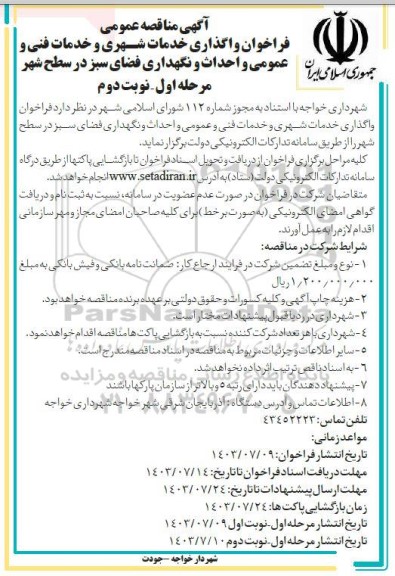 آگهی مناقصه عمومی
فراخوان واگذاری خدمات شهری و خدمات فنی و
عمومی و احداث و نگهداری فضای سبز در سطح شهر
مرحله اول-نوبت دوم
جمهوری اسلامی ایران
شهرداری خواجه با استناد به مجوز شماره ۱۱۲ شورای اسلامی شهر در نظر دارد فراخوان
واگذاری خدمات شهری و خدمات فنی و عمومی و احداث و نگهداری فضای سبز در سطح
شهر را از طریق سامانه تدارکات الکترونیکی دولت برگزار نماید.
کلیه مراحل برگزاری فراخوان از دریافت و تحویل اسناد فراخوان تا بازگشایی پاکتها از طریق درگاه
سامانه تدارکات الکترونیکی دولت (ستاد) به آدرس www.setadiran.ir انجام خواهد شد.
متقاضیان شرکت در فراخوان در صورت عدم عضویت در سامانه، نسبت به ثبت نام و دریافت
گواهی امضای الکترونیکی (به صورت بر خط) برای کلیه صاحبان امضای مجاز و مهر سازمانی
اقدام لازم را به عمل آورند.
شرایط شرکت در مناقصه:
۱-نوع و مبلغ تضمین شرکت در فرایند ارجاع کار: ضمانت نامه بانکی و فیش بانکی به مبلغ
۱/۲۰۰/۰۰۰/۰۰۰ ریال
۲-هزینه چاپ آگهی و کلیه کسورات و حقوق دولتی بر عهده برنده مناقصه خواهد بود.
۳-شهرداری در رد یا قبول پیشنهادات مختار است.
۴-شهرداری با هر تعداد شرکت کننده نسبت به بازگشایی پاکت ها مناقصه اقدام خواهد نمود.
۵-سایر اطلاعات و جزئیات مربوط به مناقصه در اسناد مناقصه مندرج است.
۶-به اسناد ناقص ترتیب اثر داده نخواهد شد.
۷-پیشنهاد دهندگان باید دارای رتبه ۵ و بالاتر از سازمان پارکها باشند
۸-اطلاعات تماس و آدرس دستگاه: آذربایجان شرقی شهر خواجه شهرداری خواجه
تلفن تماس: ۴۳۴۵۲۲۲۳
مواعد زمانی:
تاریخ انتشار فراخوان: ۱۴۰۳/۰۷/۰۹
مهلت دریافت اسناد فراخوان تا تاریخ: ۱۴۰۳/۰۷/۱۴
مهلت ارسال پیشنهادات تا تاریخ: ۱۴۰۳/۰۷/۲۴
زمان بازگشایی پاکت ها: ۱۴۰۳/۰۷/۲۴
تاریخ انتشار مرحله اول-نوبت اول ۱۴۰۳/۰۷/۰۹
تاریخ انتشار مرحله اول-نوبت دوم ۱۴۰۳/۷/۱۰
شهردار خواجه -جودت